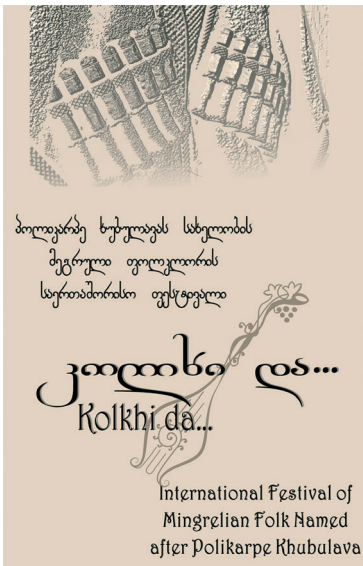 პოლიკარპე ხუბულავას სახელობის
მეგრული ფოლკლორის
საერთაშორისო ფესტივალი
კოლხი და...
Kolkhi da...
International Festival of
Mingrelian Folk Named
after Polikarpe Khubulava